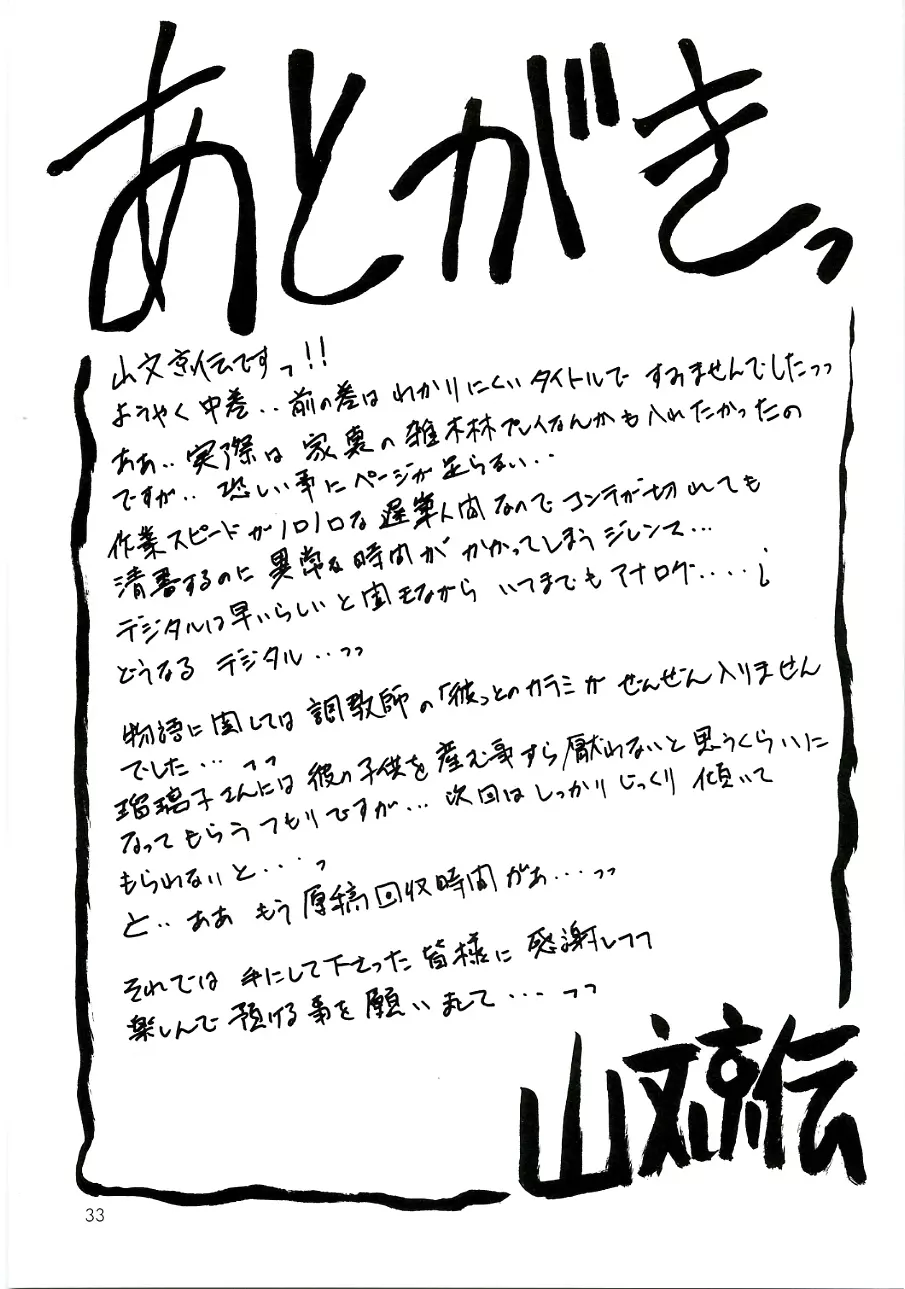 あとがきっ
山文京伝ですっ!!
ようやく中巻‥前の巻はわかりにくいタイトルですみませんでしたっっ
ああ‥実際は家裏の雑木林プレイなんかも入れたかったの
ですが‥恐しい事にページが足らない‥
作業スピードがノロノロな遅筆人間なのでコンテが切れても
清書するのに異常な時間がかかってしまうジレンマ…
デジタルは早いらしいと聞きながらいまでもアナログ‥‥
どうなるデジタル‥っっ
物語に関しては調教師の「彼」とのカラミがぜんぜん入りません
でした…っっ
瑠璃子さんには彼の子供を産む事すら厭わないと思うくらいに
なってもらうつもりですが…次回はしっかりじっくり傾いて
もらわないと‥‥っ
と‥ああもう原稿回収時間があ‥‥っっ
それでは手にして下さった皆様に感謝しっっ
楽しんで預ける事を願いまして‥‥っっ
山文京伝
33